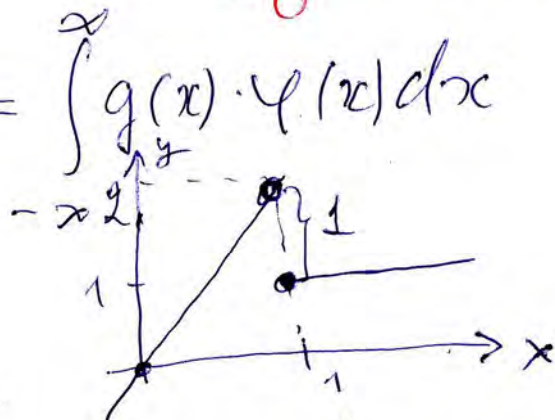 ∞
= ∫ g(x) · φ(x) dx
- ∞
y
2
1
1
x
1